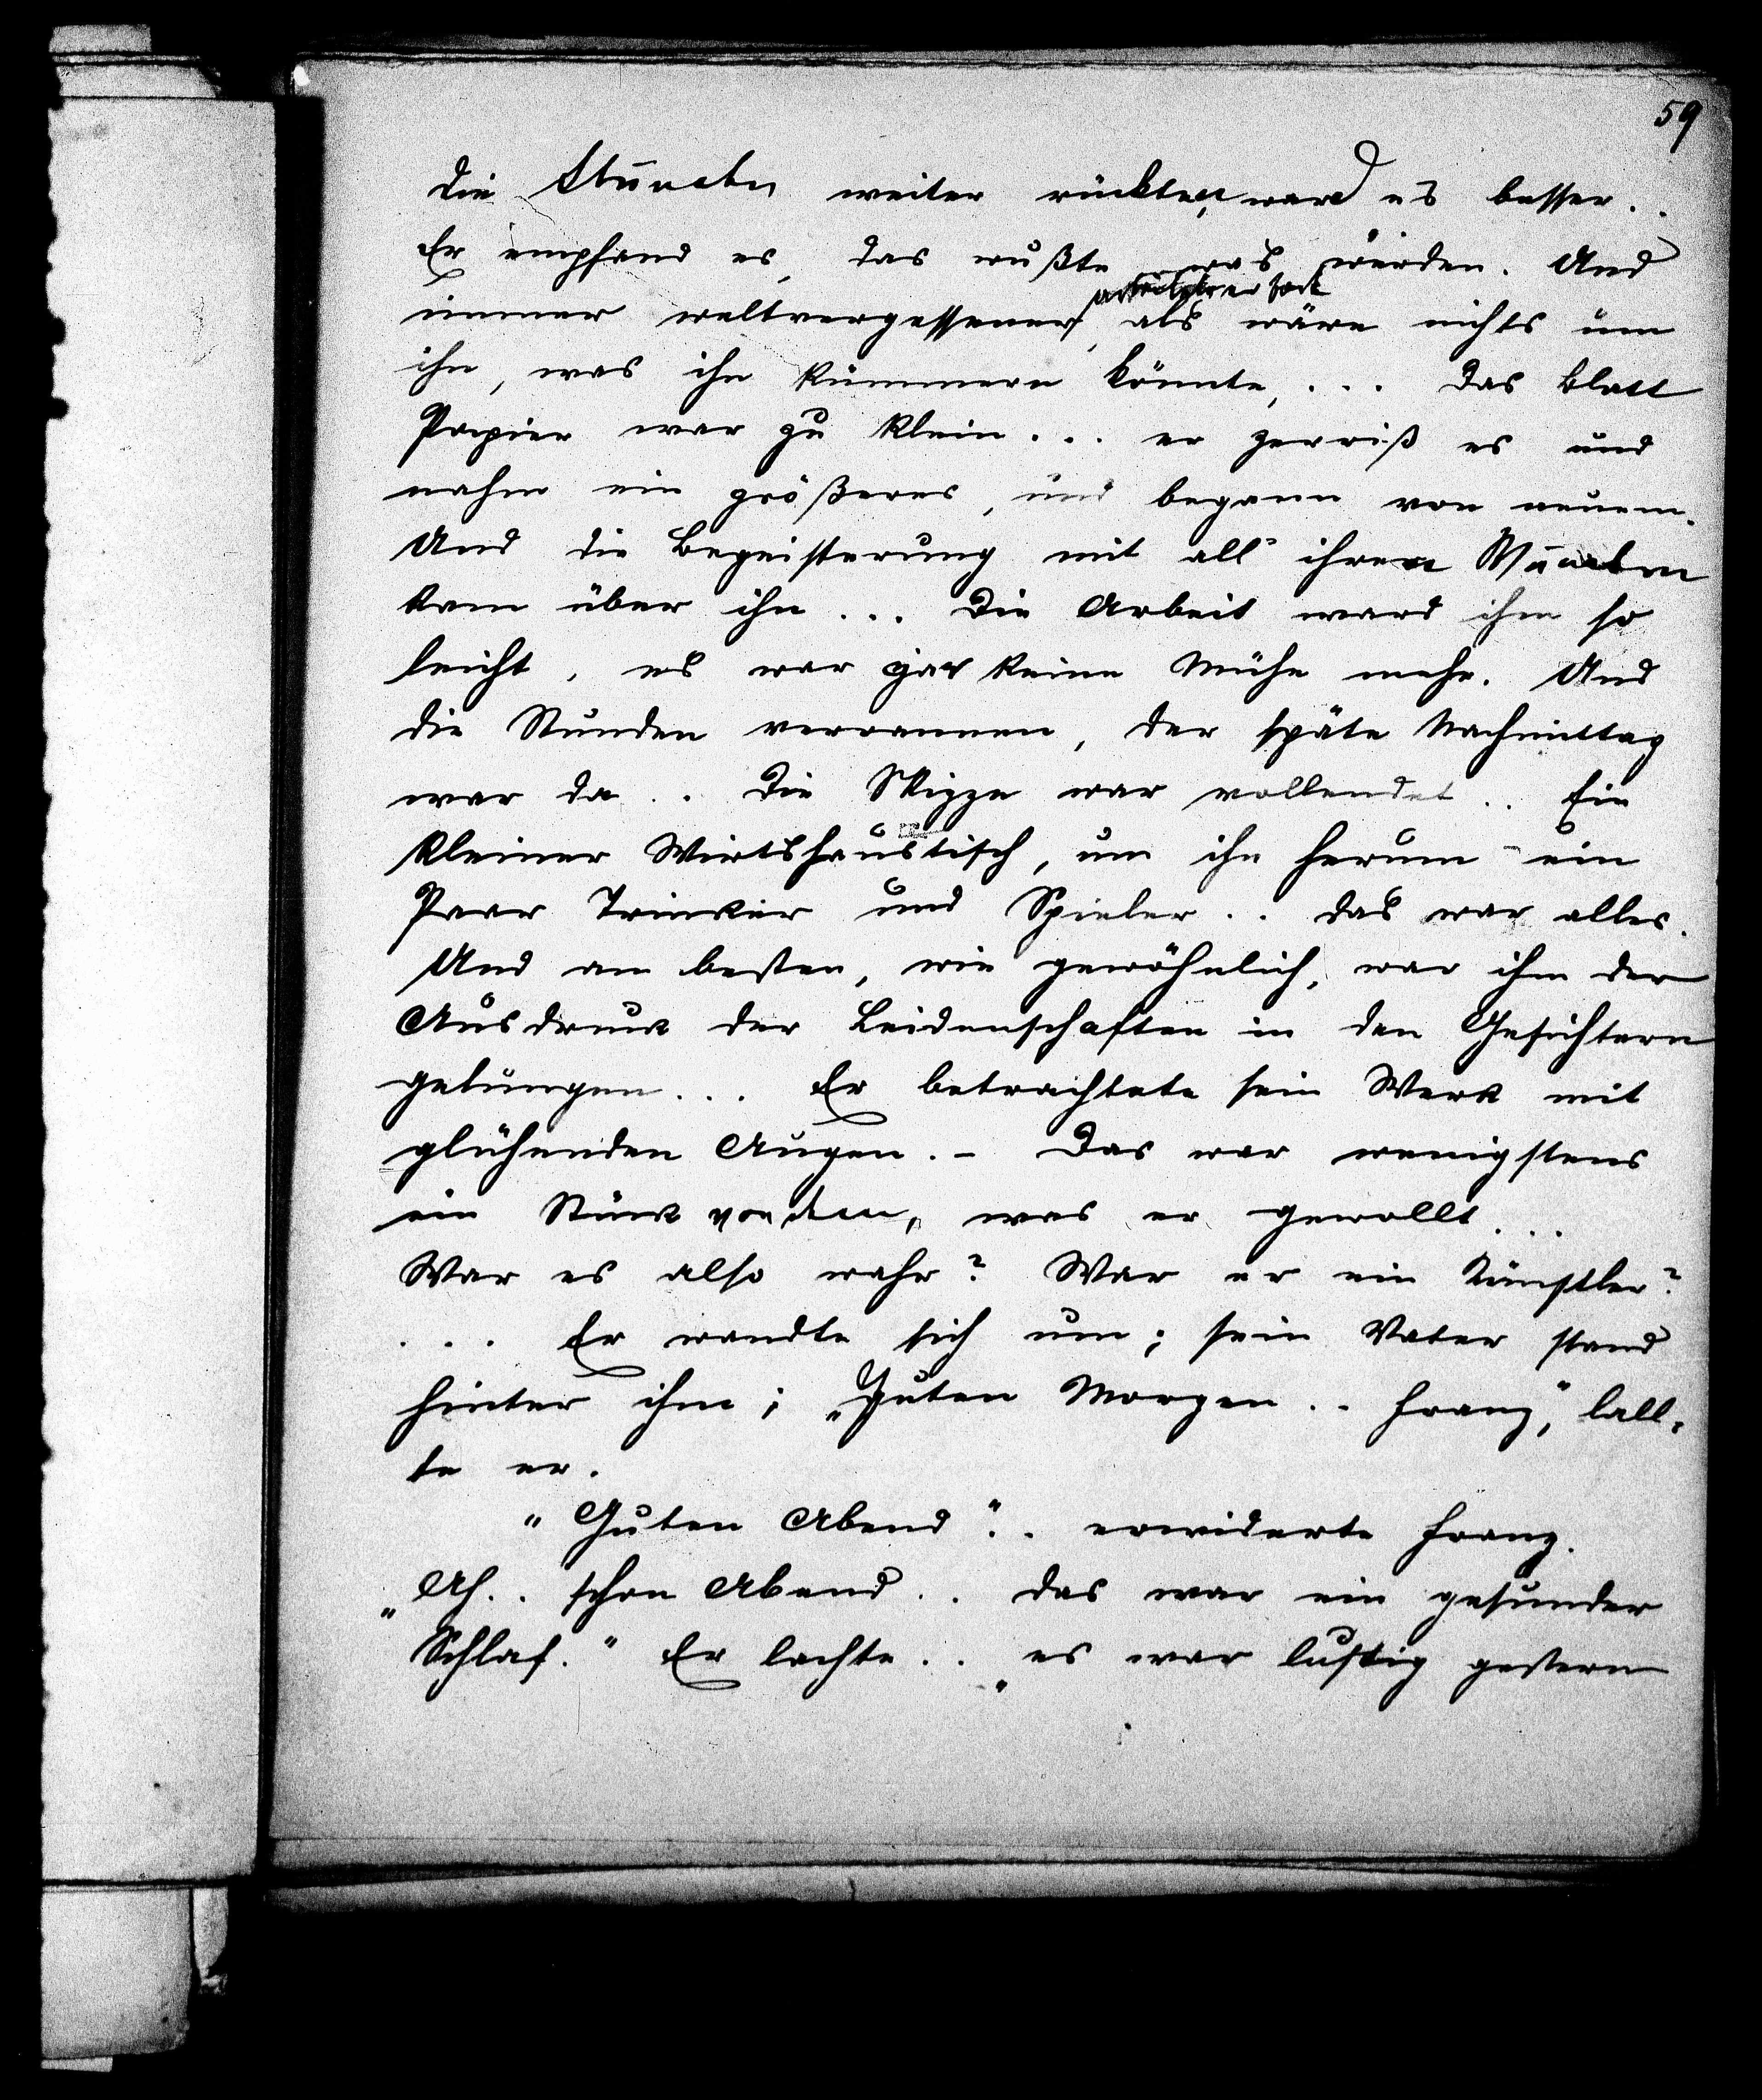 59
die Stunden weiter rückten, ward es besser..
Er empfand es, das mußte was werden. Und
arbeitete er fort
immer weltvergessener, als wäre nichts um
ihn, was ihn kümmern könnte, ... Das Blatt
Papier war zu klein ... er zerriß es und
nahm ein größeres, und begann von neuem.
Und die Begeisterung mit all' ihren Wundern
kam über ihn ... Die Arbeit ward ihm so
leicht, es war gar keine Mühe mehr. Und
die Stunden verrannen, der späte Nachmittag
war da .. Die Skizze war vollendet .. Ein
kleiner Wirtshaustisch, um ihn herum ein
Paar Trinker und Spieler .. das war alles.
Und am besten, wie gewöhnlich, war ihm der
Ausdruck der Leidenschaften in den Gesichtern
gelungen ... Er betrachtete sein Werk mit
glühenden Augen. – Das war wenigstens
ein Stück von dem, was er gewollt ...
War es also wahr? War er ein Künstler?
... Er wandte sich um; sein Vater stand
hinter ihm; „Guten Morgen .. Franz," lall-
te er.
„Guten Abend".. erwiderte Franz.
„Ah.. schon Abend .. das war ein gesunder
Schlaf." Er lachte .. „es war lustig gestern